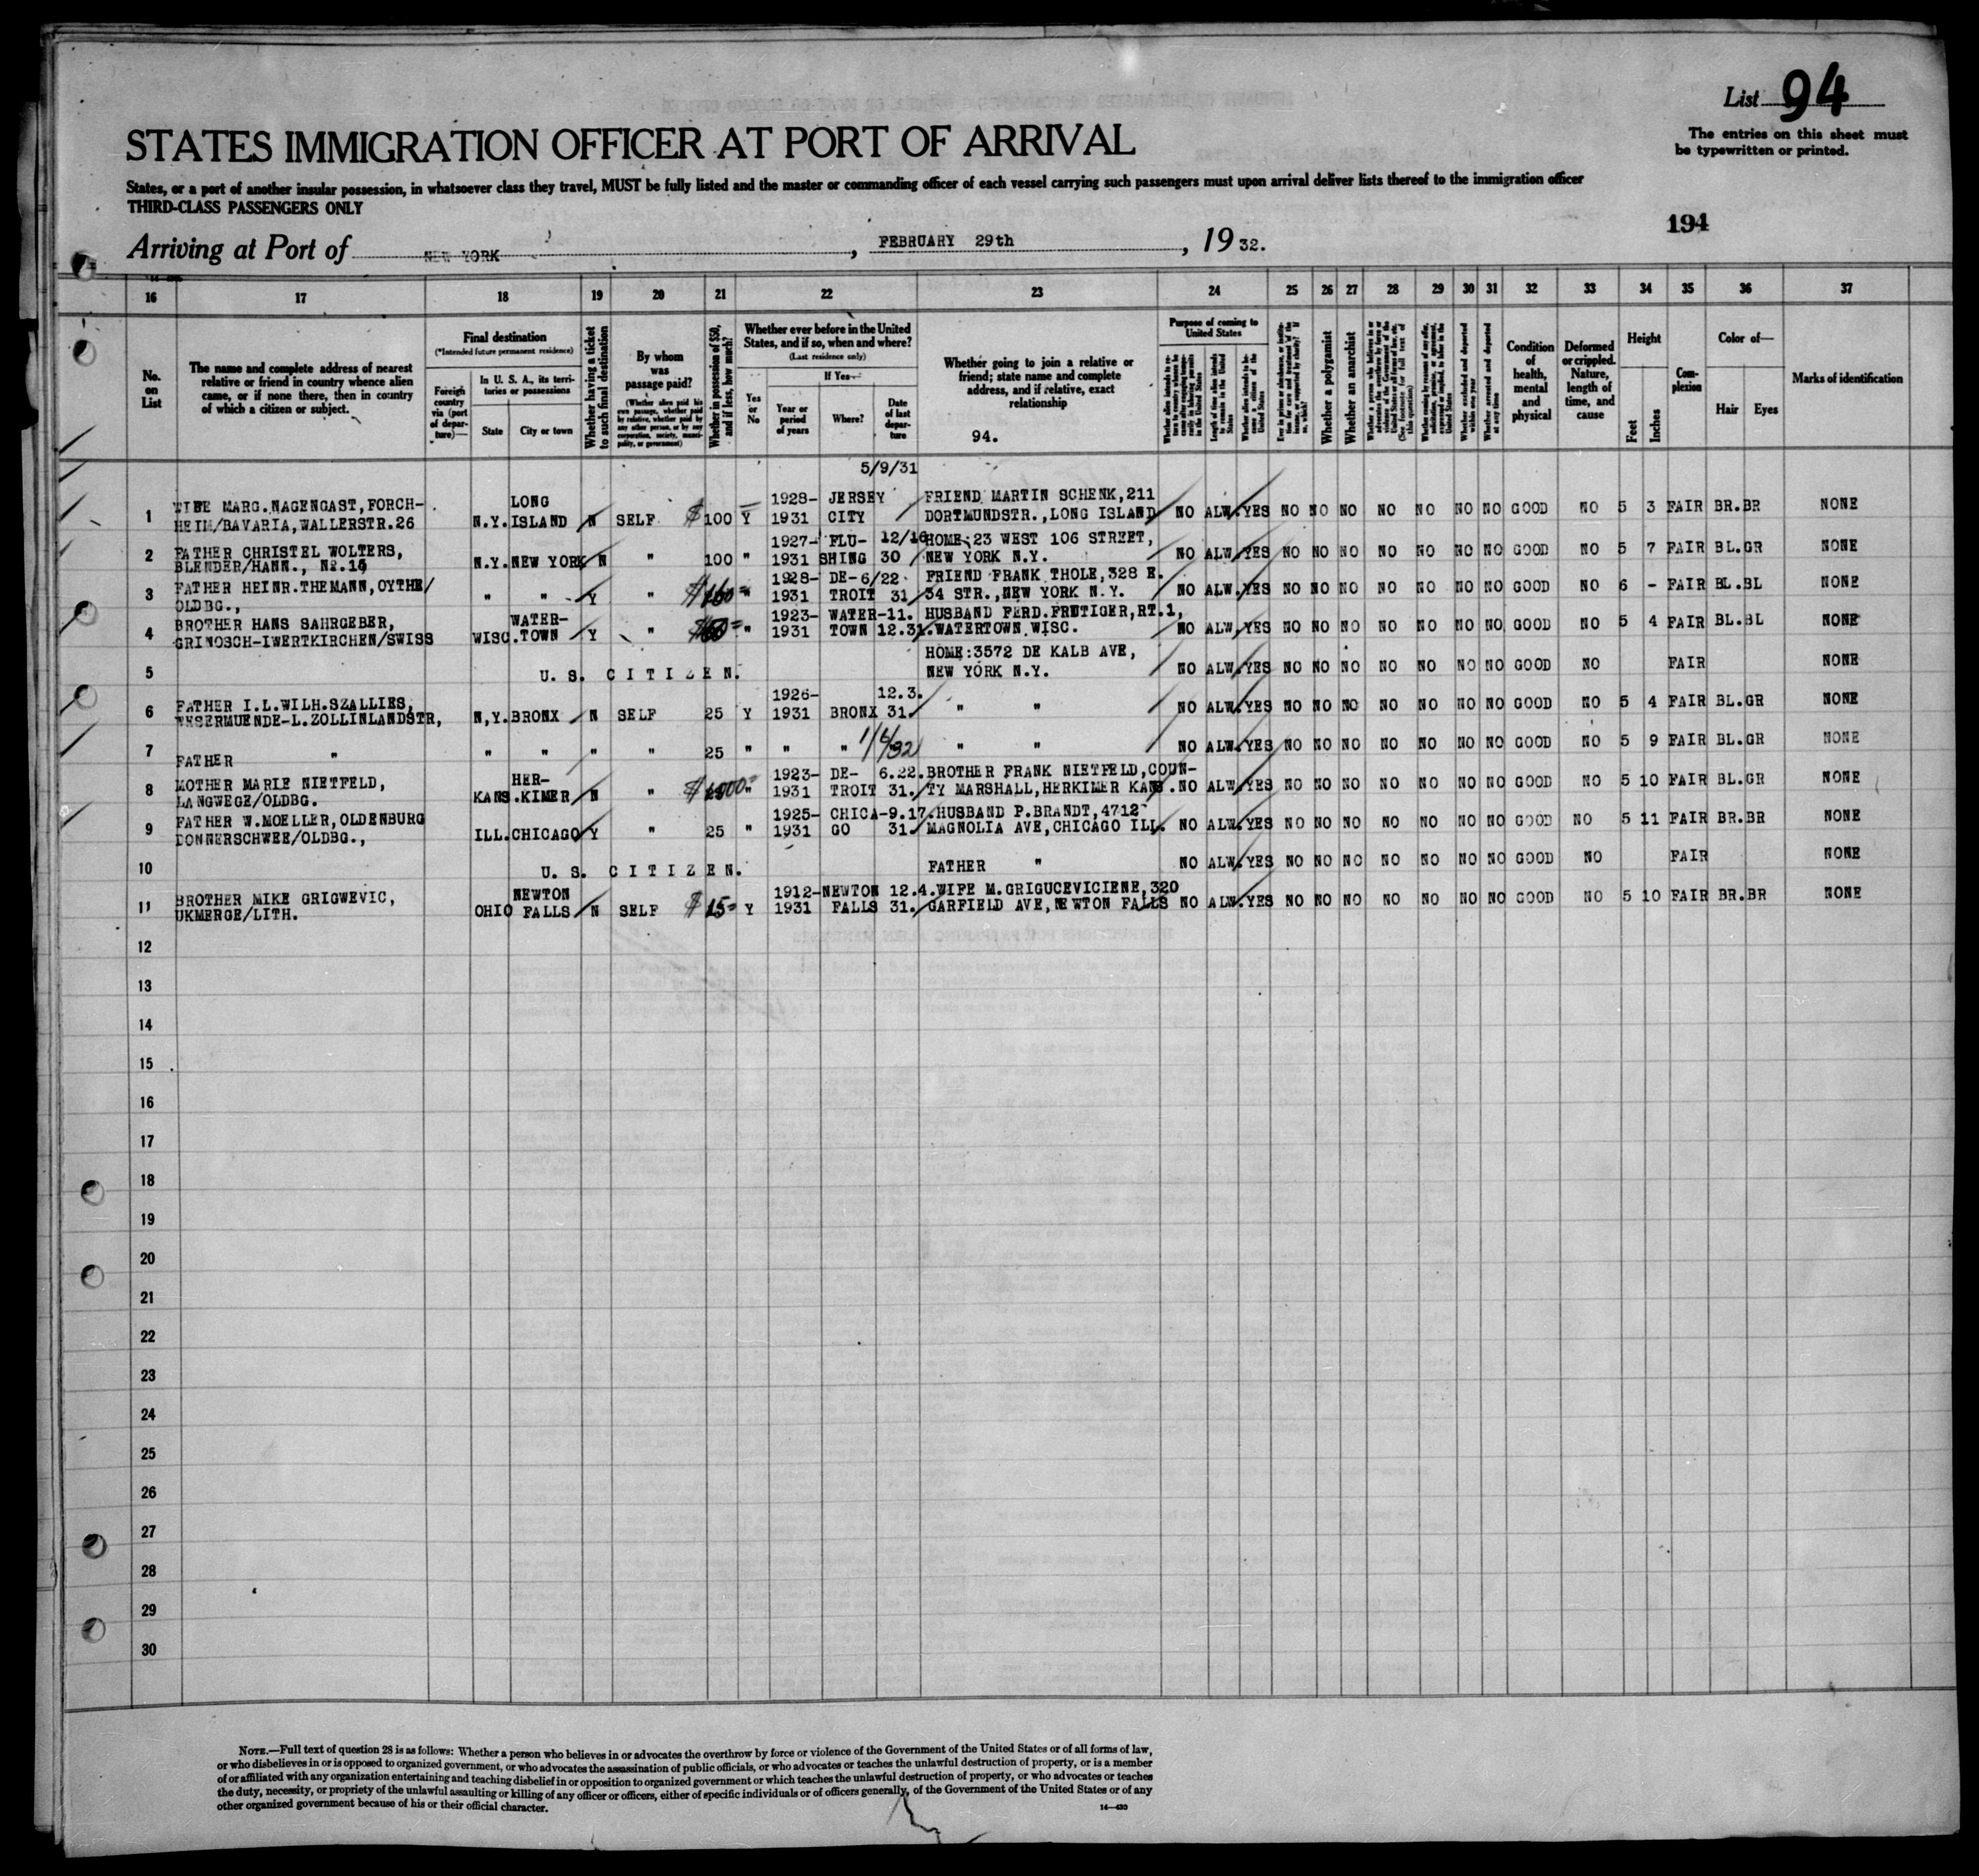 List 94
The entries on this sheet must
be typewritten or printed.
STATES IMMIGRATION OFFICER AT PORT OF ARRIVAL
States, or a port of another insular possession, in whatsoever class they travel, MUST be fully listed and the master or commanding officer of each vessel carrying such passengers must upon arrival deliver lists thereof to the immigration officer
THIRD-CLASS PASSENGERS ONLY
194
Arriving at Port of NEW YORK, FEBRUARY 29th, 1932.
16 17 18 19 20 21 22 23 24 25 26 27 28 29 30 31 32 33 34 35 36 37
No. on List
The name and complete address of nearest
relative or friend in country whence alien
came, or if none there, then in country
of which a citizen or subject.
Final destination
(*Intended future permanent residence)
Foreign country via (port of departure)—
In U. S. A., its territories or possessions
State
City or town
Whether having a ticket to such final destination
By whom was passage paid?
(Whether alien paid his own passage, whether paid by relative, whether paid by any other person, or by any corporation, society, municipality, or government)
Whether in possession of $50, and if less, how much?
Whether ever before in the United
States, and if so, when and where?
(Last residence only)
Yes or No
If Yes—
Year or period of years
Where?
Date of last departure
Whether going to join a relative or
friend; state name and complete
address, and if relative, exact
relationship
94.
Purpose of coming to United States
Length of time alien intends to remain in the United States
Whether a polygamist
Whether an anarchist
Whether excluded and deported within one year
Whether arrested and deported at any time
Condition of health, mental and physical
Deformed or crippled. Nature, length of time, and cause
Height
Feet
Inches
Complexion
Color of—
Hair
Eyes
Marks of identification
5/9/31
LONG 1928- JERSEY FRIEND MARTIN SCHENK,211
1 WIFE MARG.NAGENGAST,FORCH-
HEIM/BAVARIA,WALLERSTR.26 N.Y. ISLAND N SELF $ 100 Y 1931 CITY DORTMUNDSTR.,LONG ISLAND NO ALW. YES NO NO NO NO NO NO NO GOOD NO 5 3 FAIR BR.BR NONE
1927- FLU- 12/16 HOME:23 WEST 106 STREET,
2 FATHER CHRISTEL WOLTERS,
BLENDER/HANN., N.Y. NEW YORK N " 100 " 1931 SHING 30 NEW YORK N.Y. NO ALW. YES NO NO NO NO NO NO NO GOOD NO 5 7 FAIR BL.GR NONE
1928- DE- 6/22 FRIEND FRANK THOLE,328 E.
3 FATHER HEINR.THEMANN,OYTHE/
OLDBG., " " Y " $ " 1931 TROIT 31 34 STR.,NEW YORK N.Y. NO ALW. YES NO NO NO NO NO NO NO GOOD NO 6 - FAIR BL.BL NONE
WATER- 1923- WATER- 11. HUSBAND FERD.FRUTIGER,RT.1,
4 BROTHER HANS SAHRGEBER,
GRINOSCH-IWERTKIRCHEN/SWISS WISC. TOWN Y " $ " 1931 TOWN 12.31. WATERTOWN WISC. NO ALW. YES NO NO NO NO NO NO NO GOOD NO 5 4 FAIR BL.BL NONE
HOME:3572 DE KALB AVE,
5 U. S. CITIZEN. NEW YORK N.Y. NO ALW. YES NO NO NO NO NO NO NO GOOD NO FAIR NONE
1926- 12.3.
6 FATHER I.L.WILH.SZALLIES,
WESERMUENDE-L.ZOLLINLANDSTR, N,Y. BRONX N SELF 25 Y 1931 BRONX 31. " " NO ALW. YES NO NO NO NO NO NO NO GOOD NO 5 4 FAIR BL.GR NONE
7 FATHER " " " " " 25 " " " 1/6/32 " " NO ALW. YES NO NO NO NO NO NO NO GOOD NO 5 9 FAIR BL.GR NONE
HER- 1923- DE- 6.22. BROTHER FRANK NIETFELD,COUN-
8 MOTHER MARIE NIETFELD,
LANGWEGE/OLDBG. KANS. KIMER N " $ " 1931 TROIT 31. TY MARSHALL,HERKIMER KANS. NO ALW. YES NO NO NO NO NO NO NO GOOD NO 5 10 FAIR BL.GR NONE
1925- CHICA- 9.17. HUSBAND P.BRANDT,4712
9 FATHER W.MOELLER,OLDENBURG
DONNERSCHWEE/OLDBG., ILL. CHICAGO Y " 25 " 1931 GO 31. MAGNOLIA AVE,CHICAGO ILL. NO ALW. YES NO NO NO NO NO NO NO GOOD NO 5 11 FAIR BR.BR NONE
10 U. S. CITIZEN. FATHER " NO ALW. YES NO NO NO NO NO NO NO GOOD NO FAIR NONE
NEWTON 1912- NEWTON 12.4. WIFE M.GRIGUCEVICIENE,320
11 BROTHER MIKE GRIGWEVIC,
UKMERGE/LITH. OHIO FALLS N SELF $ 15 Y 1931 FALLS 31. GARFIELD AVE,NEWTON FALLS NO ALW. YES NO NO NO NO NO NO NO GOOD NO 5 10 FAIR BR.BR NONE
12
13
14
15
16
17
18
19
20
21
22
23
24
25
26
27
28
29
30
NOTE.—Full text of question 28 is as follows: Whether a person who believes in or advocates the overthrow by force or violence of the Government of the United States or of all forms of law,
or who disbelieves in or is opposed to organized government, or who advocates the assassination of public officials, or who advocates or teaches the unlawful destruction of property, or is a member
of or affiliated with any organization entertaining and teaching disbelief in or opposition to organized government or which teaches the unlawful destruction of property, or who advocates or teaches
the duty, necessity, or propriety of the unlawful assaulting or killing of any officer or officers, either of specific individuals or of officers generally, of the Government of the United States or of any
other organized government because of his or their official character.
14—430